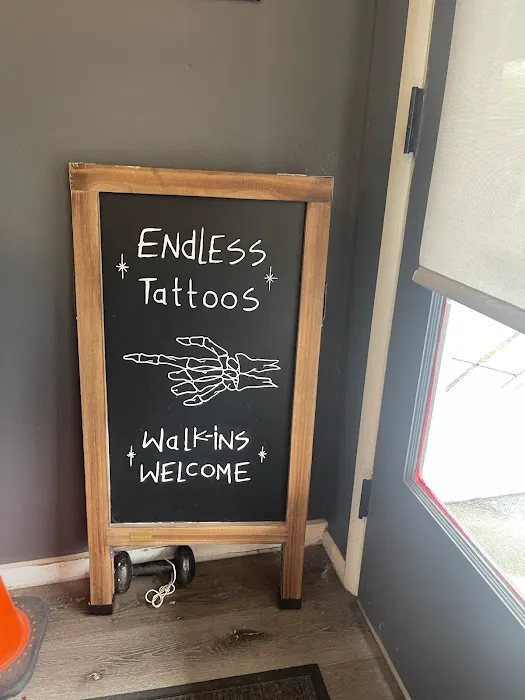 ENdLESS
Tattoos
WaLK-iNS
WELCOME